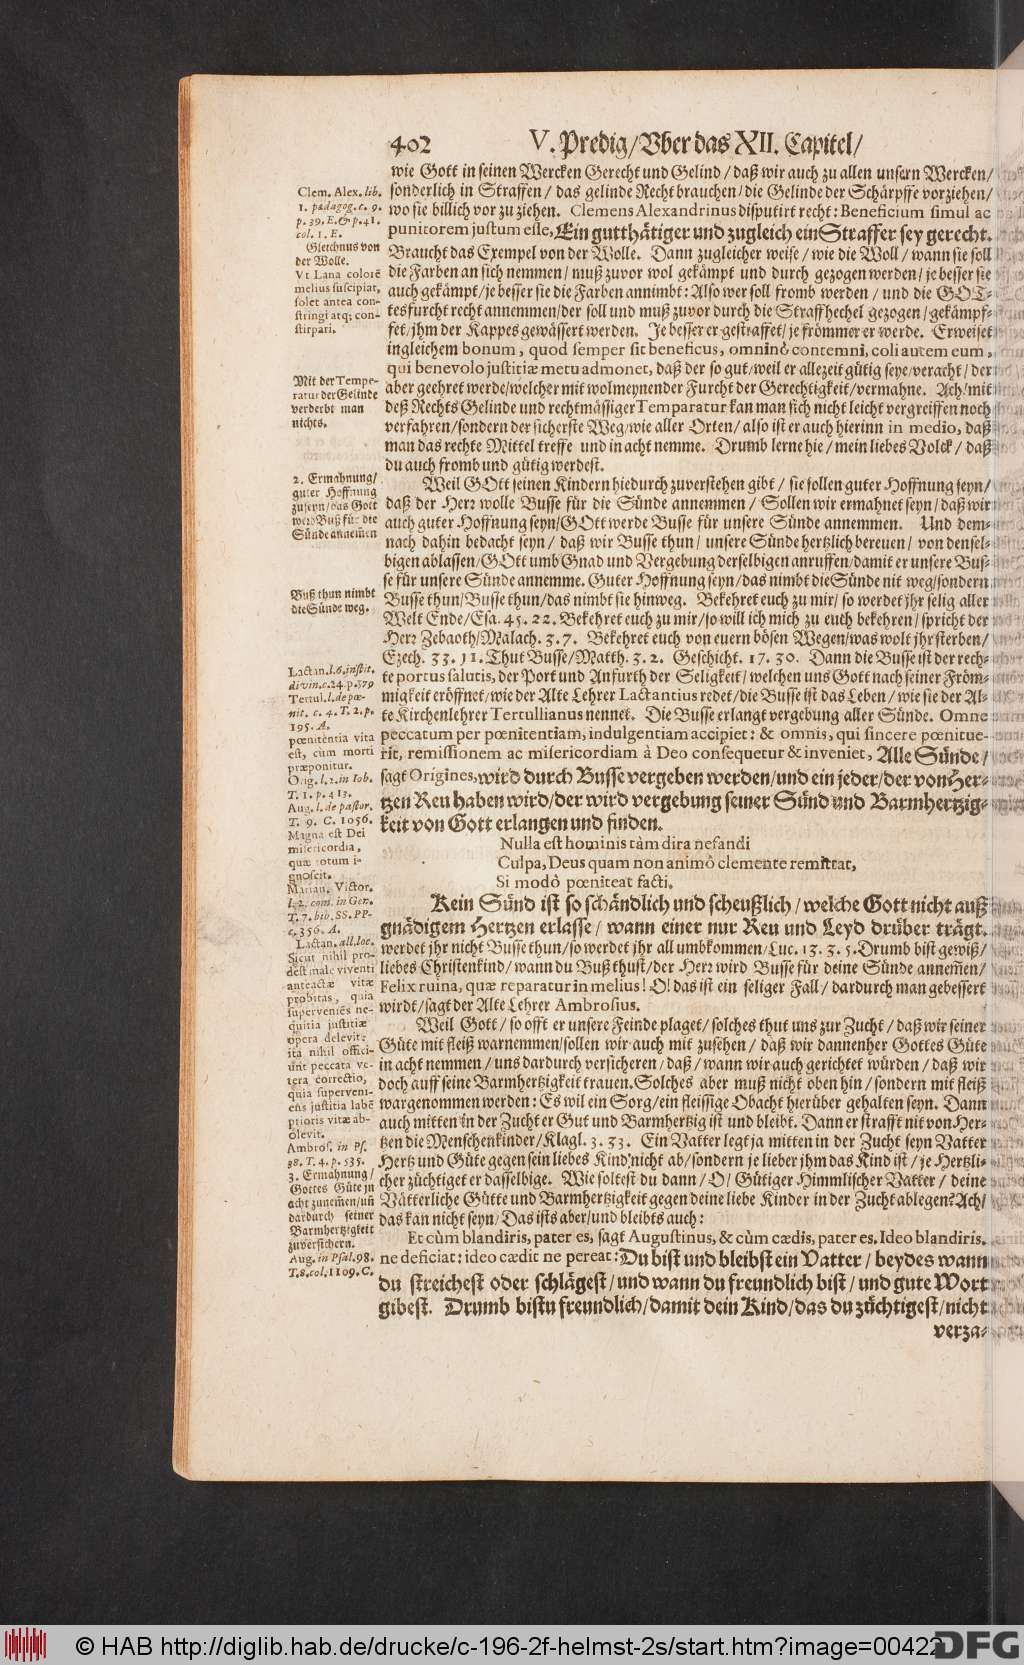 402 V. Predig/Vber das XII. Capitel/
wie Gott in seinen Wercken Gerecht und Gelind/daß wir auch zu allen unsern Wercken/
sonderlich in Straffen/das gelinde Recht brauchen/die Gelinde der Schärpffe vorziehen/
wo sie billich vor zu ziehen. Clemens Alexandrinus disputirt recht: Beneficium simul ac
punitorem justum esse, Ein gutthätiger und zugleich ein Straffer sey gerecht.
Braucht das Exempel von der Wolle. Dann zugleicher weise/wie die Woll/wann sie soll
die Farben an sich nemmen/muß zuvor wol gekämpt und durch gezogen werden/je besser sie
auch gekämpt/je besser sie die Farben annimbt: Also wer soll fromb werden/und die GOT-
tesfurcht recht annemmen/der soll und muß zuvor durch die Straffhechel gezogen/gekämpf-
fet/jhm der Kappes gewässert werden. Je besser er gestraffet/je frömmer er werde. Erweiset
ingleichem bonum, quod semper sit beneficus, omninò contemni, coli autem eum,
qui benevolo justitiæ metu admonet, daß der so gut/weil er allezeit gütig seye/veracht/der
aber geehret werde/welcher mit wolmeynender Furcht der Gerechtigkeit/vermahne. Ach/mit
deß Rechts Gelinde und rechtmässiger Temparatur kan man sich nicht leicht vergreiffen noch
verfahren/sondern der sicherste Weg/wie aller Orten/also ist er auch hierinn in medio, daß
man das rechte Mittel treffe und in acht nemme. Drumb lerne hie/mein liebes Volck/daß
du auch fromb und gütig werdest.
Weil GOtt seinen Kindern hiedurch zuverstehen gibt/sie sollen guter Hoffnung seyn/
daß der Herr wolle Busse für die Sünde annemmen/Sollen wir ermahnet seyn/daß wir
auch guter Hoffnung seyn/GOtt werde Busse für unsere Sünde annemmen. Und dem-
nach dahin bedacht seyn/daß wir Busse thun/unsere Sünde hertzlich bereuen/von densel-
bigen ablassen/GOtt umb Gnad und Vergebung derselbigen anruffen/damit er unsere Bus-
se für unsere Sünde annemme. Guter Hoffnung seyn/das nimbt die Sünde nit weg/sondern
Busse thun/Busse thun/das nimbt sie hinweg. Bekehret euch zu mir/so werdet jhr selig aller
Welt Ende/Esa. 45. 22. Bekehret euch zu mir/so will ich mich zu euch bekehren/spricht der
Herr Zebaoth/Malach. 3. 7. Bekehret euch von euern bösen Wegen/was wolt jhr sterben/
Ezech. 33. 11. Thut Busse/Matth. 3. 2. Geschicht. 17. 30. Dann die Busse ist der rech-
te portus salutis, der Port und Anfurth der Seligkeit/welchen uns Gott nach seiner Fröm-
migkeit eröffnet/wie der Alte Lehrer Lactantius redet/die Busse ist das Leben/wie sie der Al-
te Kirchenlehrer Tertullianus nennet. Die Busse erlangt vergebung aller Sünde. Omne
peccatum per pœnitentiam, indulgentiam accipiet: & omnis, qui sincere pœnitue-
rit, remissionem ac misericordiam à Deo consequetur & inveniet, Alle Sünde/
sagt Origines, wird durch Busse vergeben werden/und ein jeder/der von Her-
tzen Reu haben wird/der wird vergebung seiner Sünd und Barmhertzig-
keit von Gott erlangen und finden.
Nulla est hominis tàm dira nefandi
Culpa, Deus quam non animô clemente remittat,
Si modò pœniteat facti.
Kein Sünd ist so schändlich und scheußlich/welche Gott nicht auß
gnädigem Hertzen erlasse/wann einer nur Reu und Leyd drüber trägt.
werdet jhr nicht Busse thun/so werdet jhr all umbkommen/Luc. 13. 3. 5. Drumb bist gewiß/
liebes Christenkind/wann du Buß thust/der Herr wird Busse für deine Sünde annem̃en/
Felix ruina, quæ reparatur in melius! O! das ist ein seliger Fall/dardurch man gebessert
wirdt/sagt der Alte Lehrer Ambrosius.
Weil Gott/so offt er unsere Feinde plaget/solches thut uns zur Zucht/daß wir seiner
Güte mit fleiß warnemmen/sollen wir auch mit zusehen/daß wir dannenher Gottes Güte
in acht nemmen/uns dardurch versicheren/daß/wann wir auch gerichtet würden/daß wir
doch auff seine Barmhertzigkeit trauen. Solches aber muß nicht oben hin/sondern mit fleiß
wargenommen werden: Es wil ein Sorg/ein fleissige Obacht hierüber gehalten seyn. Dann
auch mitten in der Zucht er Gut und Barmhertzig ist und bleibt. Dann er strafft nit von Her-
tzen die Menschenkinder/Klagl. 3. 33. Ein Vatter legt ja mitten in der Zucht seyn Vatter
Hertz und Güte gegen sein liebes Kind nicht ab/sondern je lieber jhm das Kind ist/je Hertzli-
cher züchtiget er dasselbige. Wie soltest du dann/O/Gütiger Himmlischer Vatter/deine
Vätterliche Gütte und Barmhertzigkeit gegen deine liebe Kinder in der Zucht ablegen? Ach/
das kan nicht seyn/Das ists aber/und bleibts auch:
Et cùm blandiris, pater es, sagt Augustinus, & cùm cædis, pater es. Ideo blandiris.
ne deficiat: ideo cædit ne pereat: Du bist und bleibst ein Vatter/beydes wann
du streichest oder schlägest/und wann du freundlich bist/und gute Wort
gibest. Drumb bistu freundlich/damit dein Kind/das du züchtigest/nicht
verza-
Clem. Alex. lib.
1. pædagog. c. 9.
p. 39. E. & p. 41.
col. 1. E.
Gleichnus von
der Wolle.
Vt Lana colorē
melius suscipiat,
solet antea con-
stringi atq; con-
stirpari.
Mit der Tempe-
ratur der Gelinde
verderbt man
nichts.
2. Ermahnung/
guter Hoffnung
zuseyn/das Gott
werd Buß für die
Sünde annem̃en
Buß thun nimbt
die Sünde weg.
Lactan. l. 6. instit.
divin. c. 24. p. 579
Tertul. l. de pœ-
nit. c. 4. T. 2. p.
195. A.
pœnitentia vita
est, cùm morti
præponitur.
Orig. l. 2. in Iob.
T. 1. p. 413.
Aug. l. de pastor.
T. 9. C. 1056.
Magna est Dei
misericordia,
quæ totum i-
gnoscit.
Marian. Victor.
l. 2. com. in Gen.
T. 7. bib. SS. PP.
c. 356. A.
Lactan. all. loc.
Sicut nihil pro-
dest male viventi
anteactæ vitæ
probitas, quia
superveniẽs ne-
quitia justitiæ
opera delevit:
ita nihil offici-
unt peccata ve-
tera correctio,
quia superveni-
ens justitia labē
prioris vitæ ab-
olevit.
Ambros. in Ps.
38. T. 4. p. 535.
3. Ermahnung/
Gottes Güte jn
acht zunem̃en/uñ
dardurch seiner
Barmhertzigkeit
zuversichern.
Aug. in Psal. 98.
T. 8. col. 1109. C.
© HAB http://diglib.hab.de/drucke/c-196-2f-helmst-2s/start.htm?image=00422
DFG